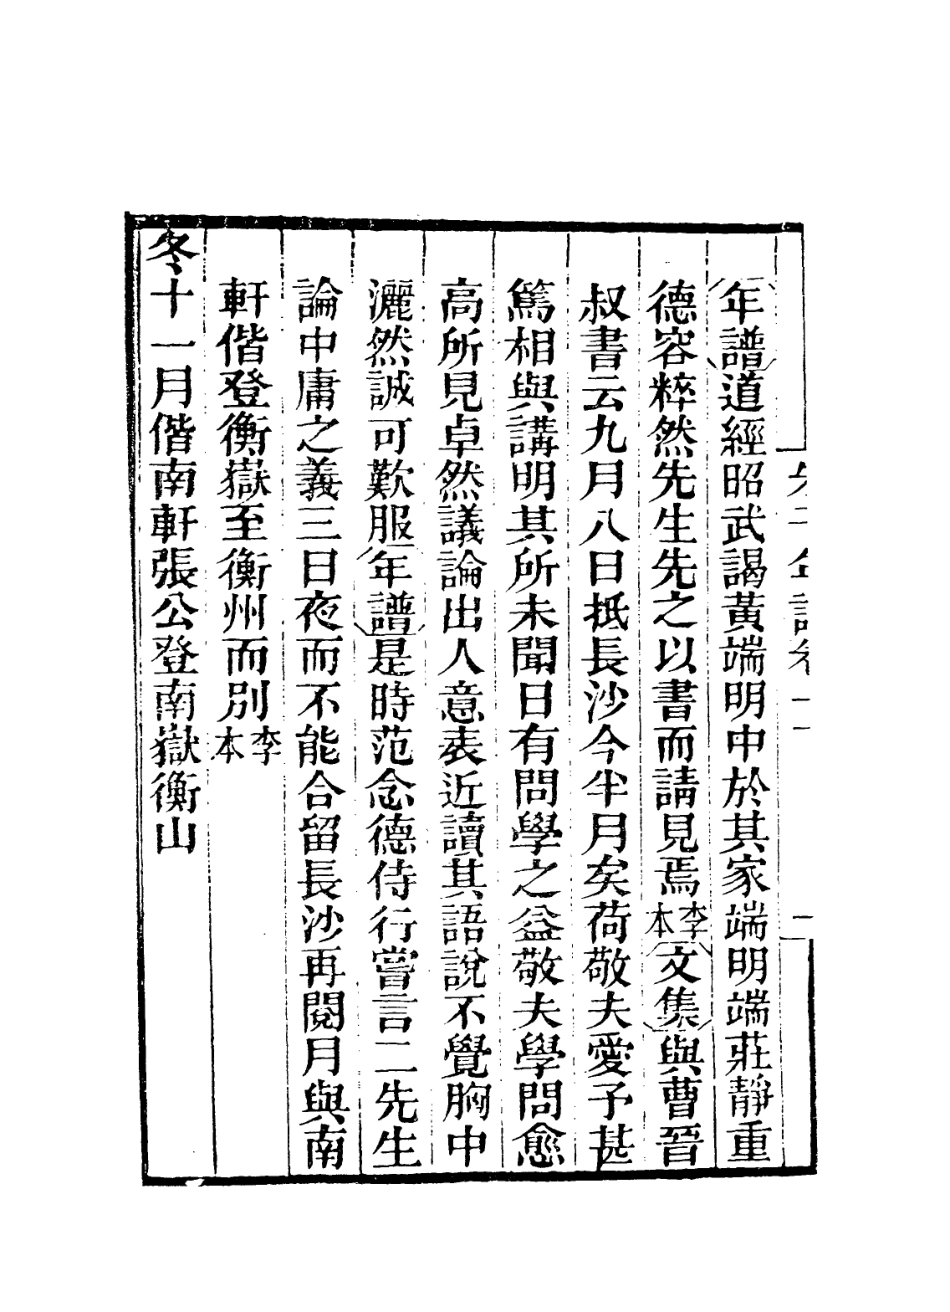 年譜道經昭武謁黃端明中於其家端明端莊靜重
德容粹然先生先之以書而請見焉李本文集與曹晉
叔書云九月八日抵長沙今半月矣荷敬夫愛予甚
篤相與講明其所未聞日有問學之益敬夫學問愈
高所見卓然議論出人意表近讀其語說不覺胸中
灑然誠可歎服年譜是時范念德侍行嘗言二先生
論中庸之義三日夜而不能合留長沙再閱月與南
軒偕登衡嶽至衡州而別李本
冬十一月偕南軒張公登南嶽衡山